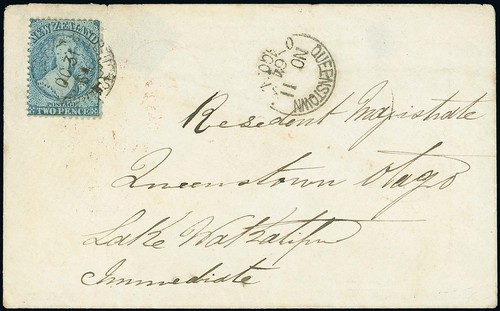 NEW ZEALAND
POSTAGE
TWO PENCE
QUEENSTOWN
NO 11
64
Resedent Magistrate
Queenstown Otago
Lake Wakatipu
Immediate